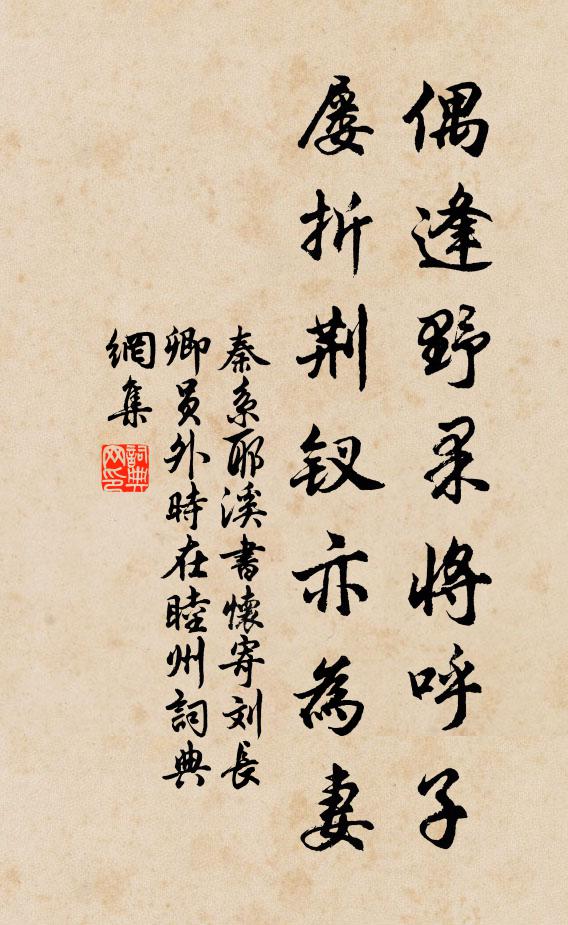 偶逢野果將呼子
屢折荆釵亦為妻
秦系耶溪書懷寄刘長
卿員外時在睦州詞典
網集
詞典
网印